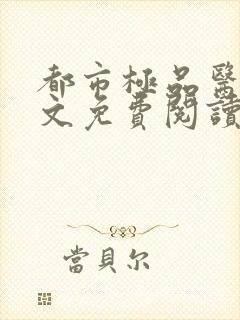 都市極品醫
文免費閱讀
當貝尔